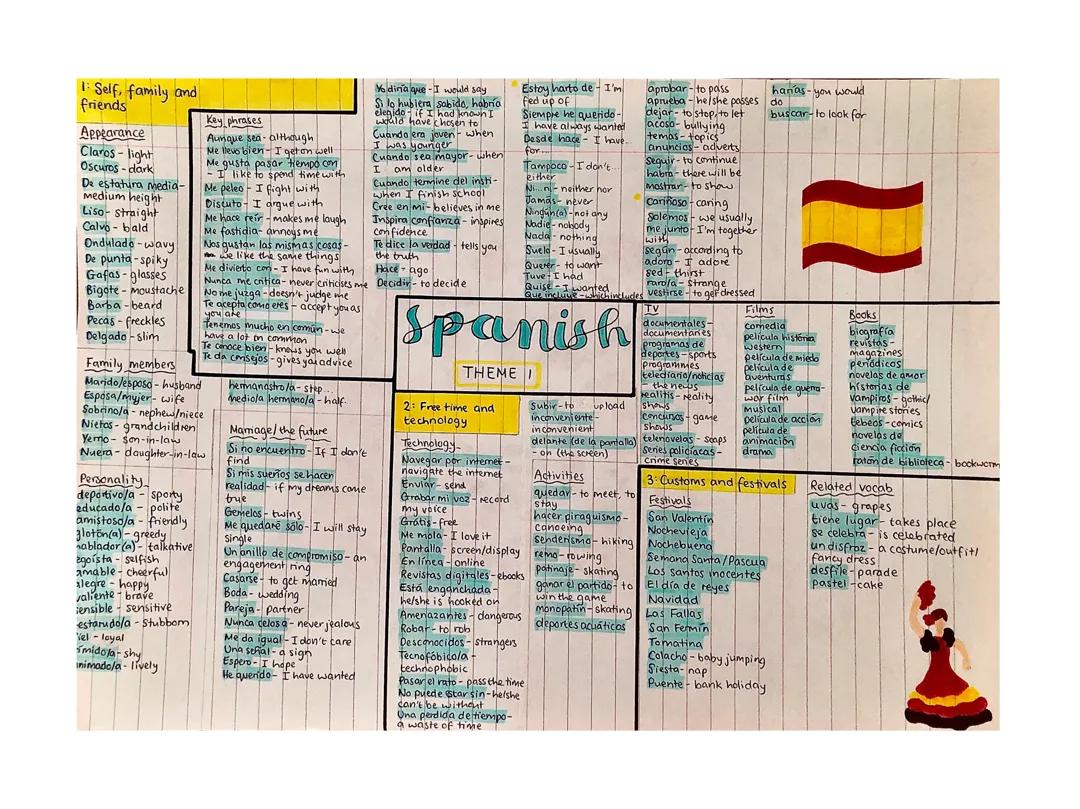 1: Self, family and
friends
Appearance
Claros - light
Oscuros - dark
De estatura media-
medium height
Liso - straight
Calvo - bald
Ondulado - wavy
De punta - spiky
Gafas - glasses
Bigote - moustache
Barba - beard
Pecas - freckles
Delgado - slim
Family members
Marido/esposo - husband
Esposa/mujer - wife
Sobrino/a - nephew/niece
Nietos - grandchildren
Yerno - son-in-law
Nuera - daughter-in-law
Personality
deportivo/a - sporty
educado/a - polite
amistoso/a - friendly
glotón(a) - greedy
hablador(a) - talkative
egoísta - selfish
amable - cheerful
alegre - happy
valiente - brave
sensible - sensitive
testarudo/a - stubborn
fiel - loyal
tímido/a - shy
animado/a - lively
Key phrases
Aunque sea - although
Me llevo bien - I get on well
Me gusta pasar tiempo con
- I like to spend time with
Me peleo - I fight with
Discuto - I argue with
Me hace reír - makes me laugh
Me fastidia - annoys me
Nos gustan las mismas cosas -
we like the same things
Me divierto con - I have fun with
Nunca me critica - never criticises me
No me juzga - doesn't judge me
Te acepta como eres - accept you as
you are
Tenemos mucho en común - we
have a lot in common
Te conoce bien - knows you well
Te da consejos - gives you advice
hermanastro/a - step...
medio/a hermano/a - half.
Marriage/the future
Si no encuentro - If I don't
find
Si mis sueños se hacen
realidad - if my dreams come
true
Gemelos - twins
Me quedaré sólo - I will stay
single
Un anillo de compromiso - an
engagement ring
Casarse - to get married
Boda - wedding
Pareja - partner
Nunca celosa - never jealous
Me da igual - I don't care
Una señal - a sign
Espero - I hope
He querido - I have wanted
Yo diría que - I would say
Si lo hubiera sabido, habría
elegido - if I had known I
would have chosen to
Cuando era joven - when
I was younger
Cuando sea mayor - when
I am older
Cuando termine del insti -
when I finish school
Cree en mi - believes in me
Inspira confianza - inspires
confidence
Te dice la verdad - tells you
the truth
Hace - ago
Decidir - to decide
Estoy harto de - I'm
fed up of
Siempre he querido -
I have always wanted
Desde hace - I have...
for...
Tampoco - I don't...
either
Ni...ni - neither nor
Jamás - never
Ningún(a) - not any
Nadie - nobody
Nada - nothing
Suelo - I usually
Querer - to want
Tuve - I had
Quise - I wanted
Que incluye - which includes
aprobar - to pass
aprueba - he/she passes
dejar - to stop, to let
acoso - bullying
temas - topics
anuncios - adverts
seguir - to continue
habrá - there will be
mostrar - to show
cariñoso - caring
solemos - we usually
me junto - I'm together
with
según - according to
adoro - I adore
sed - thirst
raro/a - strange
vestirse - to get dressed
harías - you would
do
buscar - to look for
spanish
THEME 1
2: Free time and
technology
Technology
Navegar por internet -
navigate the internet
Enviar - send
Grabar mi voz - record
my voice
Gratis - free
Me mola - I love it
Pantalla - screen/display
En línea - online
Revistas digitales - ebooks
Está enganchada -
he/she is hooked on
Amenazantes - dangerous
Robar - to rob
Desconocidos - strangers
Tecnofóbico/a -
technophobic
Pasar el rato - pass the time
No puede estar sin - he/she
can't be without
Una perdida de tiempo -
a waste of time
subir - to upload
inconveniente -
inconvenient
delante (de la pantalla)
- on (the screen)
Activities
quedar - to meet, to
stay
hacer piragüismo -
canoeing
senderismo - hiking
remo - rowing
patinaje - skating
ganar el partido - to
win the game
monopatín - skating
deportes acuáticos
TV
documentales -
documentaries
programas de
deportes - sports
programmes
telediario/noticias
- the news
realitis - reality
shows
concursos - game
shows
telenovelas - soaps
series policíacas -
crime series
Films
comedia
película história
western
película de miedo
película de
aventuras
película de guerra -
war film
musical
película de acción
película de
animación
drama
Books
biografía
revistas -
magazines
periódicos
novelas de amor
historias de
vampiros - gothic/
vampire stories
tebeos - comics
novelas de
ciencia ficción
ratón de biblioteca - bookworm
3: Customs and festivals
Festivals
San Valentín
Nochevieja
Nochebuena
Semana Santa/Pascua
Los santos inocentes
El día de reyes
Navidad
Las Fallas
San Fermín
Tomatina
Colacho - baby jumping
Siesta - nap
Puente - bank holiday
Related vocab
uvas - grapes
tiene lugar - takes place
se celebra - is celebrated
un disfraz - a costume/outfit/
fancy dress
desfile - parade
pastel - cake